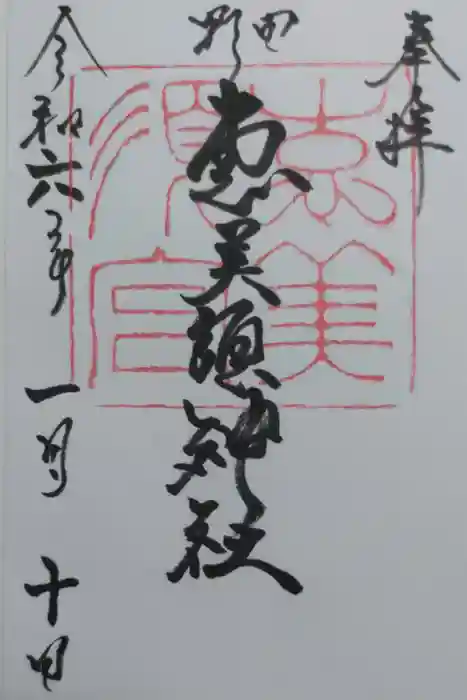 奉拝
野田
恵美須神社
恵美
須宮
令和六年一月十日